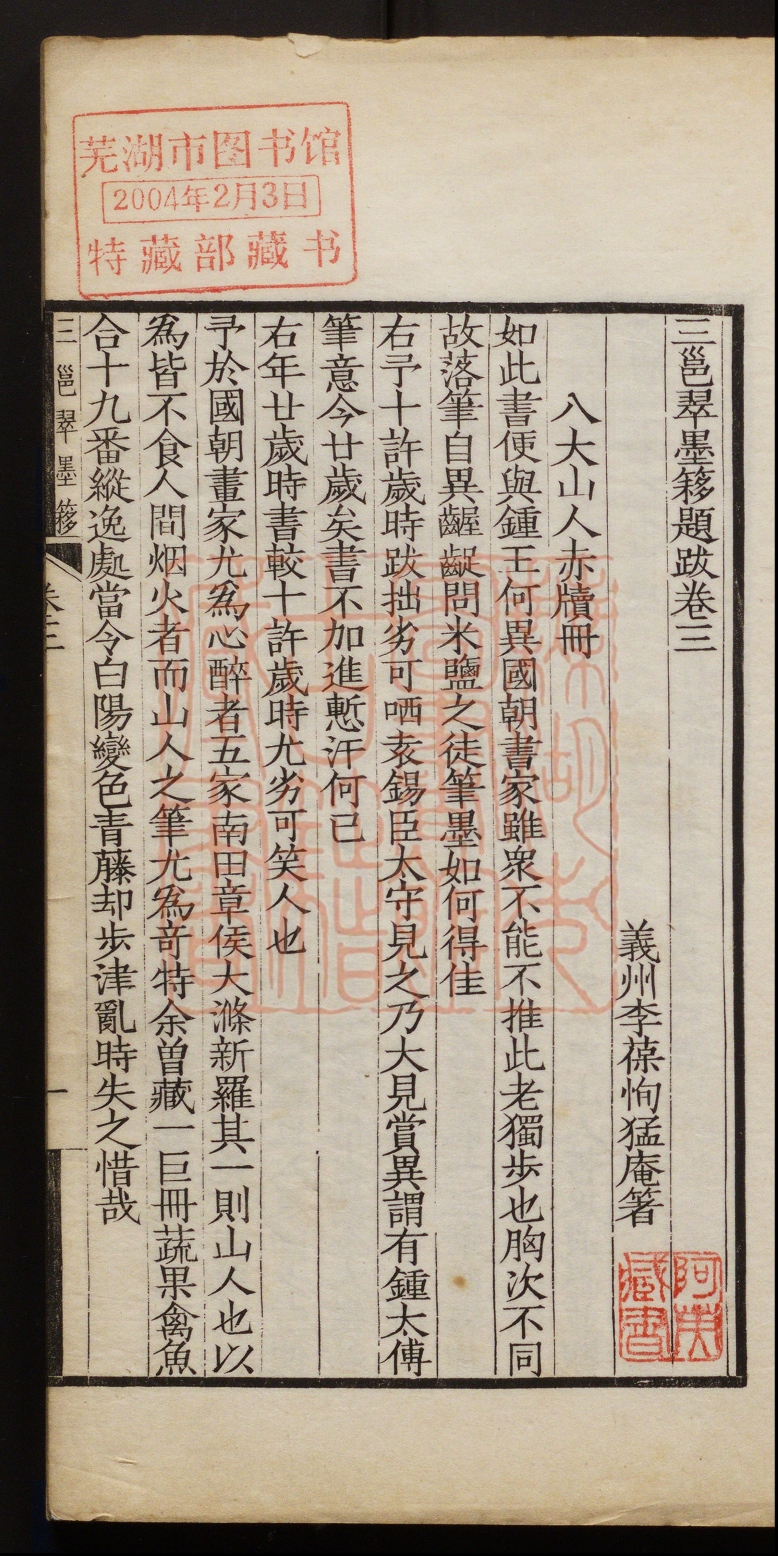 芜湖市图书馆
2004年2月3日
特藏部藏书
三邕翠墨簃題跋卷三
義州李葆恂猛庵箸
八大山人赤牘冊
如此書便與鍾王何異國朝書家雖衆不能不推此老獨步也胸次不同
故落筆自異齷齪問米鹽之徒筆墨如何得佳
右予十許歲時跋拙劣可哂袁錫臣太守見之乃大見賞異謂有鍾太傅
筆意今廿歲矣書不加進慙汗何已
右年廿歲時書較十許歲時尤劣可笑人也
予於國朝畫家尤爲心醉者五家南田章侯大滌新羅其一則山人也以
爲皆不食人間烟火者而山人之筆尤爲奇特余曾藏一巨冊蔬果禽魚
合十九番縱逸處當令白陽變色青藤却步津亂時失之惜哉
三邕翠墨簃
卷三
一
藏書